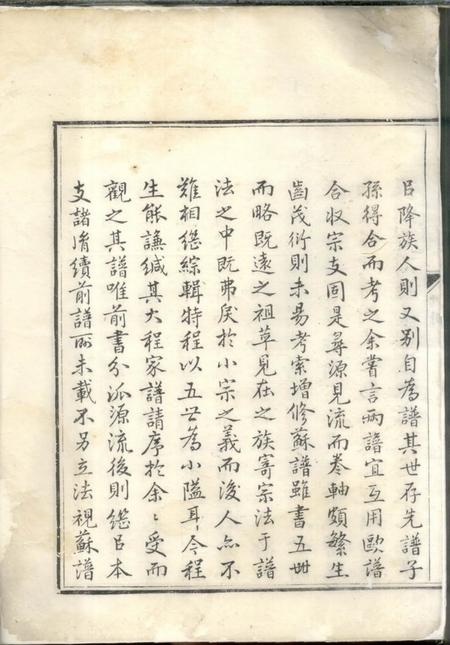 以降族人則又別自為譜其世存先譜子
孫得合而考之余嘗言兩譜宜互用歐譜
合收宗支固是尋源見流而卷軸頗繁生
齒茂衍則未易考索增修蘇譜雖書五世
而略既遠之祖草見在之族寄宗法于譜
法之中既弗戾於小宗之義而後人亦不
難相繼綜輯特程以五世為小隘耳今程
生能謙緘其大程家譜請序於余〻受而
觀之其譜唯前書分派源流後則繼以本
支諸脩續前譜所未載不另立法視蘇譜